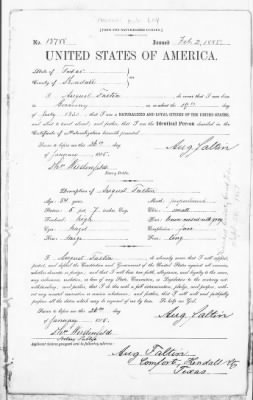 [FORM FOR NATURALIZED CITIZEN.]
No. 13788 Issued Feb. 2, 1885
UNITED STATES OF AMERICA.
State of Texas
County of Kendall
I August Faltin, do swear that I was born
in Germany on or about the day
of July ; that I am a NATURALIZED AND LOYAL CITIZEN OF THE UNITED STATES,
and about to travel abroad; and further that I am the Identical Person described in the
Certificate of Naturalization herewith presented.
Sworn to before me this 26th day
of January 1885.
Aug Faltin
Notary Public.
Description of August Faltin
Age: 54 years. Mouth:
Stature: 5 feet 7 inches Eng. Chin: small
Forehead: high Hair: brown mixed with gray
Eyes: Complexion: fair
Nose: large Face: long
I, August Faltin, do solemnly swear that I will support,
protect, and defend the Constitution and Government of the United States against all enemies,
whether domestic or foreign; and that I will bear true faith, allegiance, and loyalty to the same,
any ordinance, resolution, or law of any State, Convention, or Legislature to the contrary not-
withstanding; and further, that I do this with a full determination, pledge, and purpose, with-
out any mental reservation or evasion whatsoever; and further, that I will well and faithfully
perform all the duties which may be required of me by law. So help me God.
Sworn to before me this 26th day
of January 1885.
Aug Faltin
Notary Public
Applicant desires passport sent to following address:
Aug Faltin
Comfort, Kendall Co
Texas